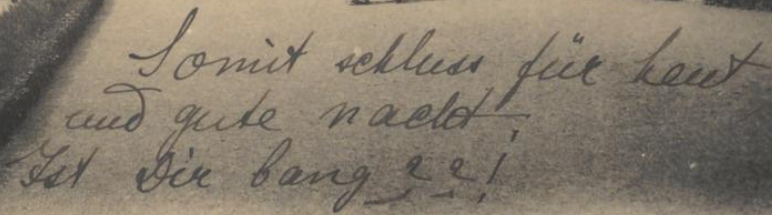 Somit schluss für heut
und gute nacht,
Ist Dir bang ??!